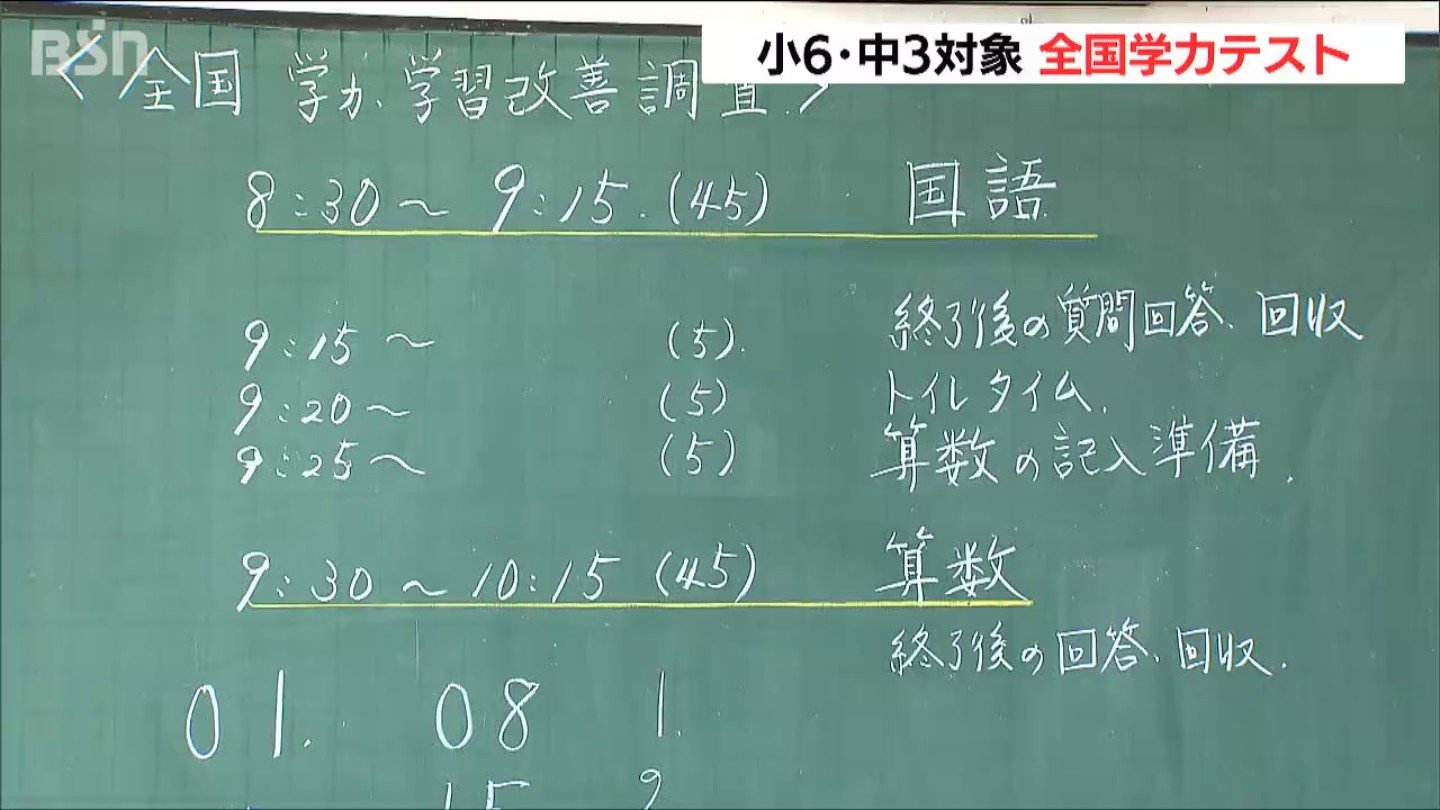 BSN
小6・中3対象 全国学力テスト
<全国 学力、学習改善調査.>
8:30～9:15.(45) 国語
9:15～ (5). 終了後の質問回答、回収
9:20～ (5) トイレタイム.
9:25～ (5) 算数の記入準備.
9:30～10:15(45) 算数
終了後の回答、回収.
01. 08 1.
15 2